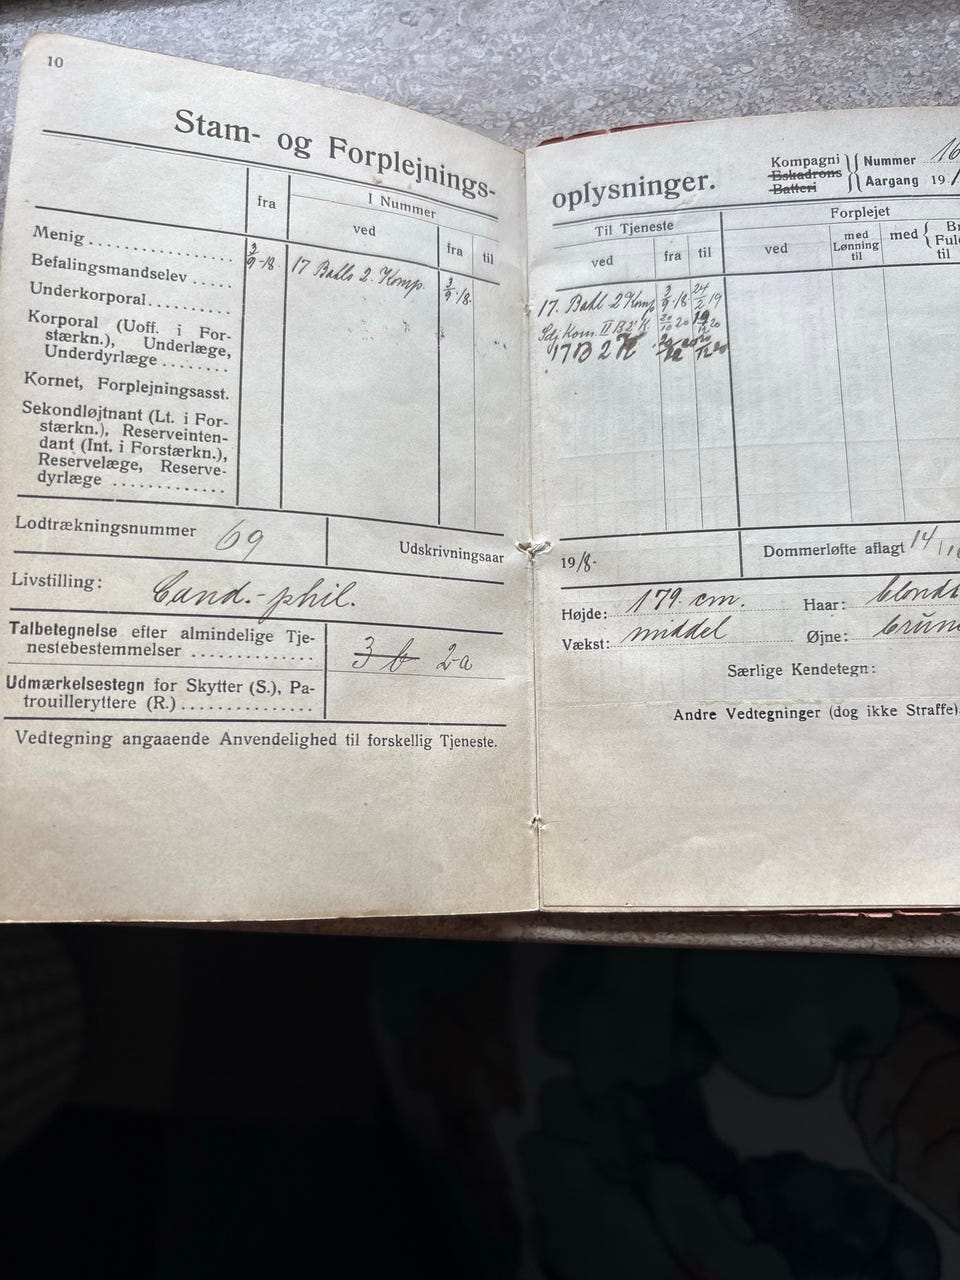 10
Stam- og Forplejnings-
fra
I Nummer
ved
fra
til
Menig
3/9 -18.
17 Batls 2. Komp.
3/9 -18.
Befalingsmandselev
Underkorporal
Korporal (Uoff. i For-
stærkn.), Underlæge,
Underdyrlæge
Kornet, Forplejningsasst.
Sekondløjtnant (Lt. i For-
stærkn.), Reserveinten-
dant (Int. i Forstærkn.),
Reservelæge, Reserve-
dyrlæge
Lodtrækningsnummer 69
Udskrivningsaar
Livstilling: Cand.-phil.
Talbetegnelse efter almindelige Tje-
nestebestemmelser 3 b 2a
Udmærkelsestegn for Skytter (S.), Pa-
trouilleryttere (R.)
Vedtegning angaaende Anvendelighed til forskellig Tjeneste.
oplysninger.
Kompagni
Eskadrons
Batteri
Nummer 16
Aargang 19
Til Tjeneste
Forplejet
ved
fra
til
ved
med
Lønning
til
med
Br
Ful
til
17. Batl 2 Komp 3/9 -18 24/2 19
II B 2' K 20/10 20 20
17 B 2 K
19/8.
Dommerløfte aflagt 14/
Højde: 179. cm.
Haar: blond
Vækst: middel
Øjne: brun
Særlige Kendetegn:
Andre Vedtegninger (dog ikke Straffe)